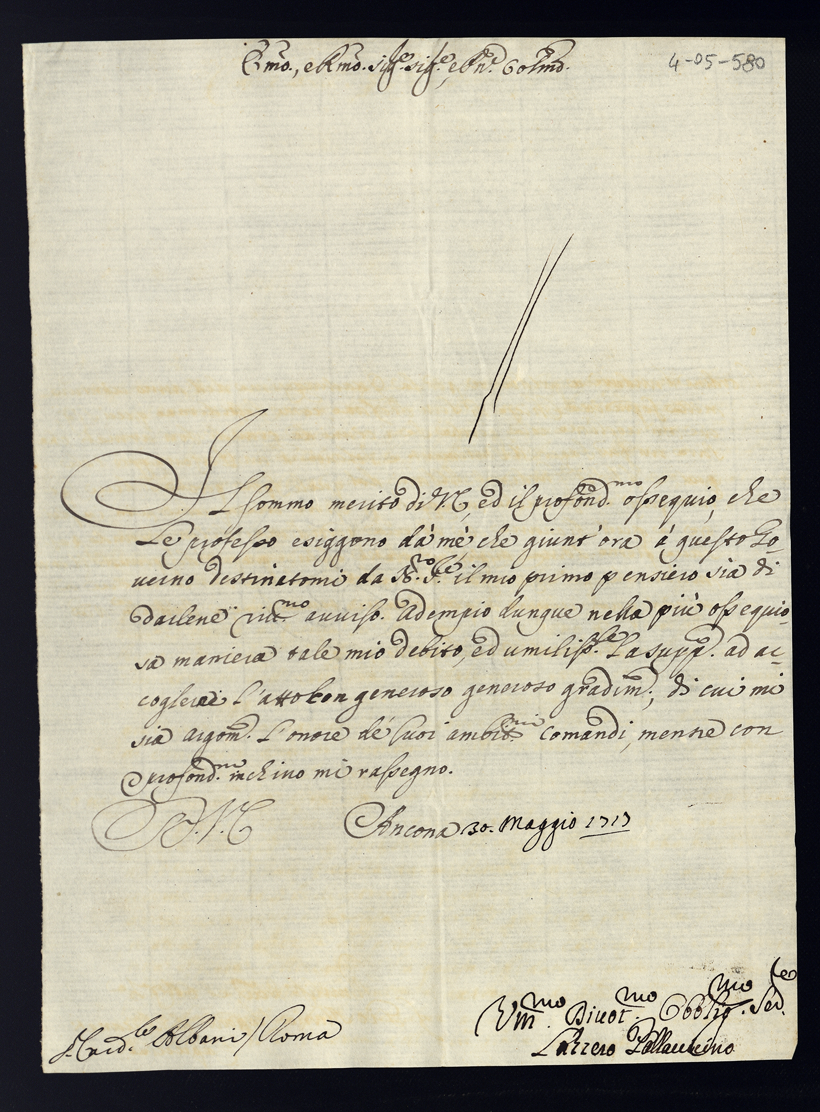 4-05-580
E.mo, e R.mo Sig.re Sig.re, e P.ne Col.mo
Il sommo merito di V.E. ed il profond.mo ossequio, che
Le professo esiggono da mè, che giunt'ora à questo Go-
verno destinatomi da il mio primo pensiero sia di
darlene avviso. Adempio dunque nella più ossequio-
sa maniera tale mio debito, ed umiliss.te La supp.co ad ac-
coglierne l'atto con generoso generoso gradim.to, di cui mi
sia argom.to l'onore de' suoi ambit.mi comandi, mentre con
profond.mo inchino mi rassegno.
D. V.E. Ancona 30. Maggio 1717
Um.mo Divot.mo Obblig.mo Ser.re
S.r Card.le Albani / Roma
Lazzero Pallavicino